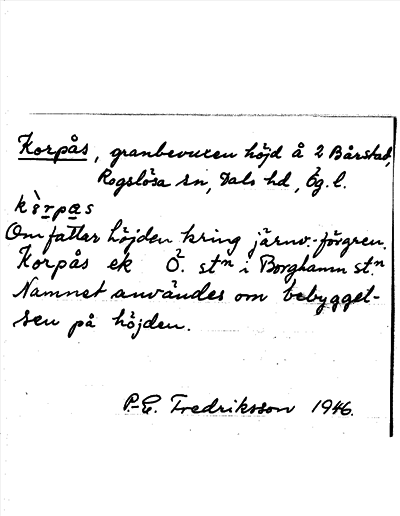 Korpås, granbevuxen höjd å 2 Bårstad,
Rogslösa sn, Dals hd, Ög. l.
Omfattar höjden kring järnv.-förgren.
Korpås ek Ö. stn i Borghamn stn.
Namnet användes om bebyggel-
sen på höjden.
P.-E. Fredriksson 1946.